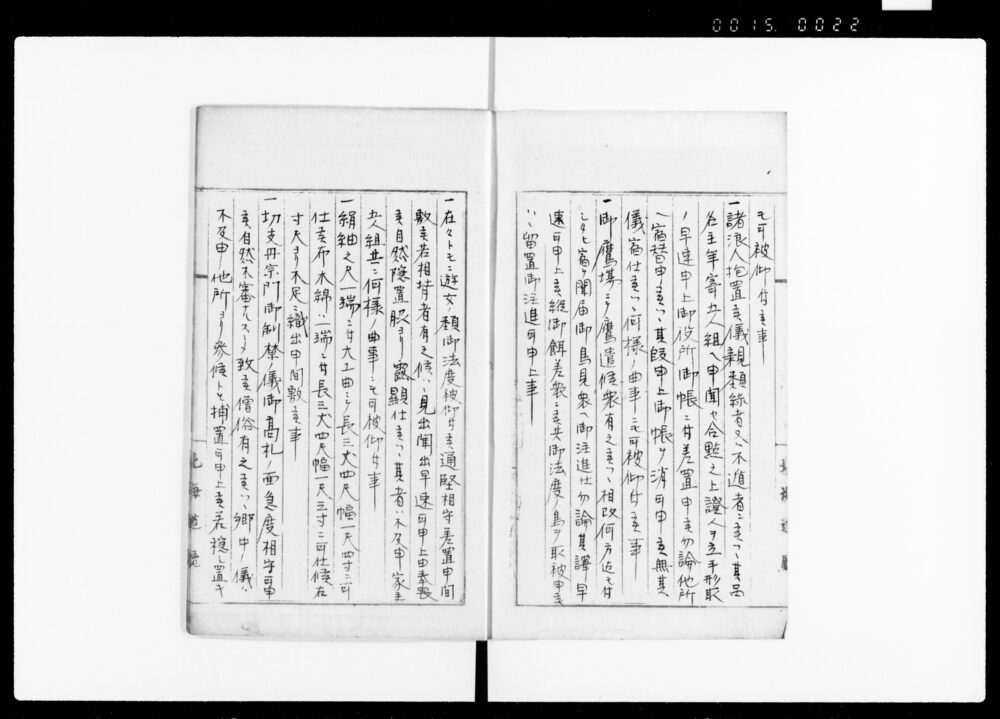 0015. 0022
モ可被仰付候事
一諸浪人抱置候儀親類縁者又ハ不遁者ニ候ハヽ其品
名主年寄五人組ヘ申聞セ合點之上證人ヲ立手形取
早速申上御役所御帳ニ付差置申候勿論他所
ヘ宿替申候ハヽ其段申上御帳ヲ消可申候無其
儀宿仕候ハヽ何様ノ曲事ニモ可被仰付候事
一御鷹場ニテ鷹遣候衆有之候ハヽ相改何方迄モ付
シタヒ宿ヲ聞届御鳥見衆ヘ御注進仕勿論其譯早
速可申上候縦御餌差衆ニ候共御法度ノ鳥ヲ取被申候
ハヽ留置御注進可申上事
一在々トモニ遊女ノ類御法度被仰付候通堅相守差置申間
敷候若相背者有之候ハヽ見出聞出早速可申上由奉畏
候自然隠置脇ヨリ露顯仕候ハヽ其者ハ不及申家主
五人組共ニ何様ノ曲事ニモ可被仰付事
一絹紬之尺一端ニ付大工曲ニテ長三丈四尺幅一尺四寸ニ可
仕候布木綿ハ一端ニ付長三丈四尺幅一尺三寸ニ可仕候右
寸尺ヨリ不足ニ織出申間敷候事
一切支丹宗門御制禁ノ儀御高札ノ面急度相守可申
候自然不審ナル者致候僧俗有之候ハヽ郷中ノ儀ハ
不及申他所ヨリ参候トモ捕置可申上候若穏シ置キ
北海道廳